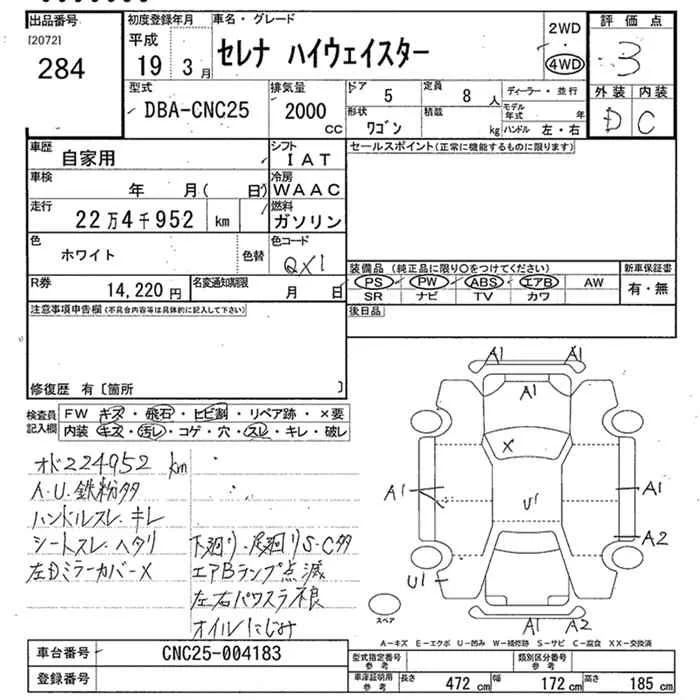 出品番号
[2072]
284
初度登録年月
平成
19 3月
車名・グレード
セレナ ハイウェイスター
2WD
4WD
評価点
3
外装 内装
D C
型式
DBA-CNC25
排気量
2000
CC
ドア
5
定員
8 人
ディーラー・並行
形状
ワゴン
積載
kg
モデル年式 年
ハンドル 左・右
車歴
自家用
シフト
IAT
セールスポイント(正常に機能するものに限ります)
車検
年 月( 日)
冷房
WAAC
走行
22万4千952 km
燃料
ガソリン
色
ホワイト
色替
色コード
QX1
装備品 (純正品に限り○をつけてください)
新車保証書
PS PW ABS エアB AW
有・無
SR ナビ TV カワ
R券
14,220 円
名変通知期限
月 日
後日品
注意事項申告欄(不具合内容等は具体的に記入して下さい)
修復歴 有〔箇所 〕
検査員記入欄
FW キズ・飛石・ヒビ割・リペア跡・×要
内装・キズ・汚レ・コゲ・穴・スレ・キレ・破レ
オド224952 km
A.U.鉄粉タ
ハンドルスレ・キレ
シートスレ・ヘタリ
下廻り・足廻りS・C多
左Dミラーカバー×
エアBランプ点滅
左右パワスラ不良
オイルにじみ
A1 A1
A1
X
A1 A1
U1
A2
U1
スペア
A1 A2
A-キズ E-エクボ U-凹み W-補修跡 S-サビ C-腐食 XX-交換済
車台番号
CNC25-004183
登録番号
型式指定番号
参考
類別区分番号
参考
車庫証明用
参考
長さ 472 cm
幅 172 cm
高さ 185 cm